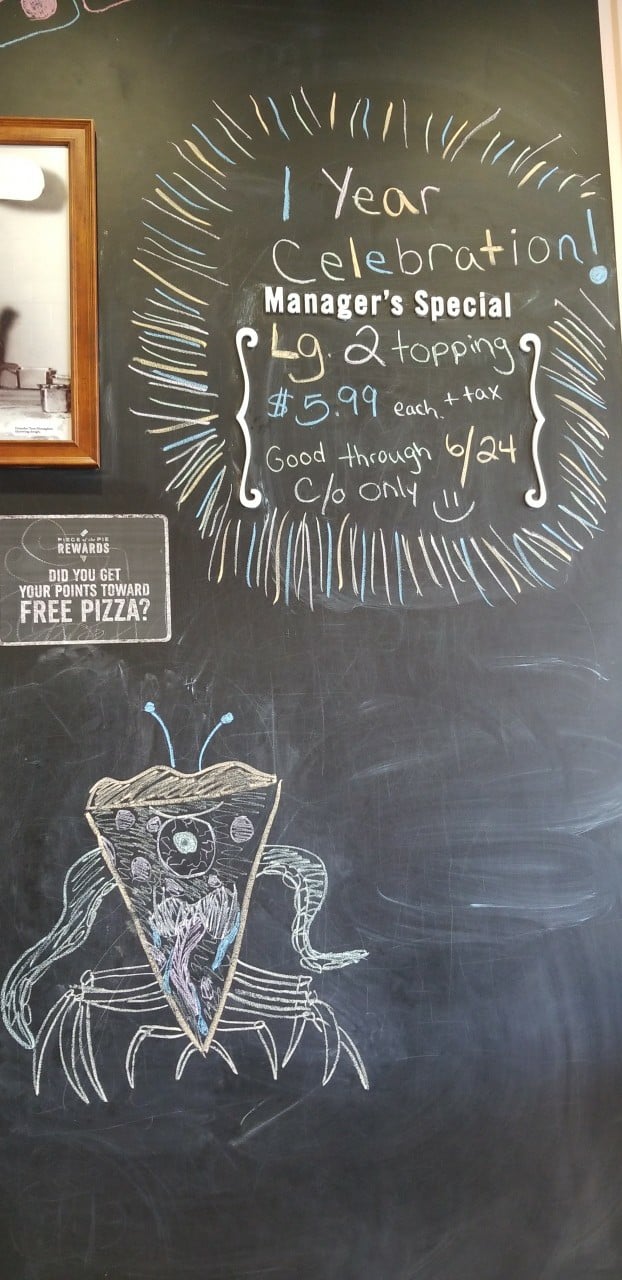 1 Year
Celebration!
Manager's Special
Lg. 2 topping
$5.99 each. + tax
Good through 6/24
C/o Only
PIECE of the PIE
REWARDS
DID YOU GET
YOUR POINTS TOWARD
FREE PIZZA?